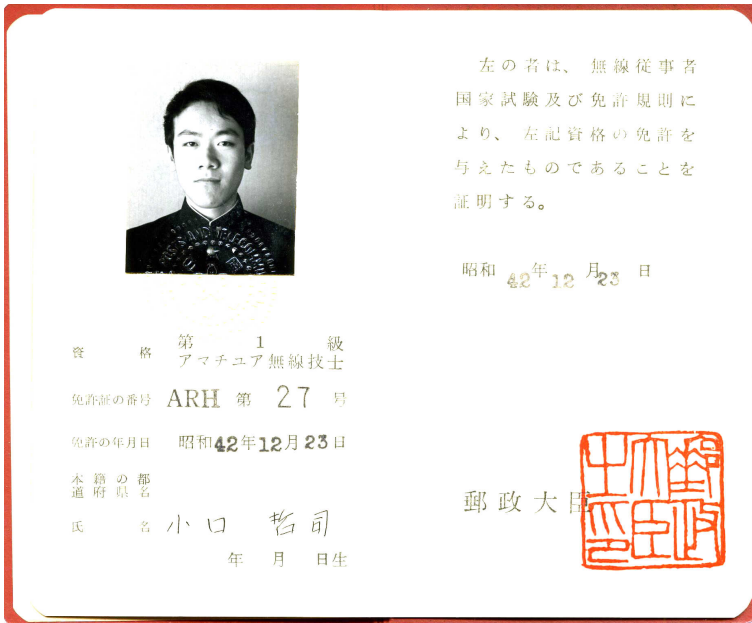 資格 第1級
アマチユア無線技士
免許証の番号 ARH 第 27 号
免許の年月日 昭和42年12月23日
本籍の都
道府県名
氏名 小口 哲司
年 月 日生
左の者は、無線従事者
国家試験及び免許規則に
より、左記資格の免許を
与えたものであることを
証明する。
昭和 42年 12月 23日
郵政大臣
郵政大臣之印